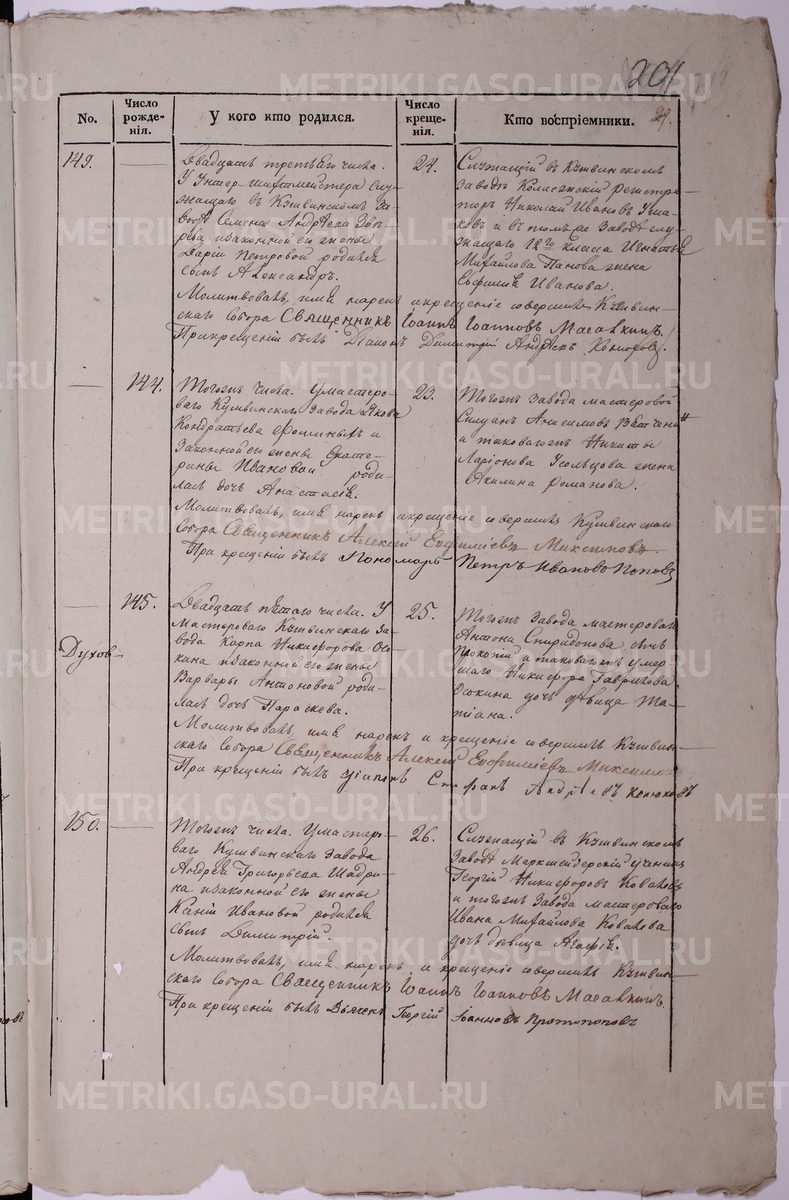 201
No.
Число рожде-нія.
У кого кто родился.
Число креще-нія.
Кто воспріемники.
29.
149.
Двадцать третьяго числа.
У Унтер-шихтмейстера слу-
жащаго въ Кушвинскомъ за-
водѣ Симона Андреева Звѣ-
рева и законной его жены
Даріи Петровой родился
сынъ Александръ.
24.
Служащій въ Кушвинскомъ
заводѣ Коллежскій Регистра-
торъ Николай Ивановъ Уша-
ковъ и въ томъ же заводѣ слу-
жащаго 12го класса Игнатья
Михайлова Панова жена
Евфимія Иванова.
Молитвовалъ, имя нарекъ и крещеніе совершилъ Кушвин-
скаго собора Священникъ Іоаннъ Іоанновъ
При крещеніи былъ Діаконъ Димитрій Андреевъ
144.
Тогожъ числа. У мастеро-
ваго Кушвинскаго завода Якова
Кондратьева Фоминыхъ и
законной его жены Екате-
рины Ивановой роди-
лась дочь Анастасія.
23.
Тогожъ завода мастеровой
Силуанъ Анисимовъ
а таковагожъ Никиты
Ларіонова Усольцова жена
Акилина Романова.
Молитвовалъ, имя нарекъ и крещеніе совершилъ Кушвинскаго
собора Священникъ Алексій Евфиміевъ Максимовъ.
При крещеніи былъ Пономарь Петръ Ивановъ Поповъ
145.
Духов-
Двадцать пятаго числа. У
мастероваго Кушвинскаго за-
вода Карпа Никифорова Осо-
кина и законной его жены
Варвары Антоновой роди-
лась дочь Параскева.
25.
Тогожъ завода мастероваго
Антона Спиридонова сынъ
Прокопій и таковагожъ умер-
шаго Никифора Гаврилова
Осокина дочь дѣвица Та-
тіана.
Молитвовалъ, имя нарекъ и крещеніе совершилъ Кушвин-
скаго собора Священникъ Алексій Евфиміевъ Максимовъ
При крещеніи былъ Стефанъ Андреевъ
150.
Тогожъ числа. У мастеро-
ваго Кушвинскаго завода
Андрея Григорьева Шадри-
на и законной его жены
Ксеніи Ивановой родился
сынъ Димитрій.
26.
Служащій въ Кушвинскомъ
заводѣ Маркшейдерскій ученикъ
Георгій Никифоровъ Коваловъ
и тогожъ завода мастероваго
Ивана Михайлова Ковалова
дочь дѣвица Агафія.
Молитвовалъ, имя нарекъ и крещеніе совершилъ Кушвин-
скаго собора Священникъ Іоаннъ Іоанновъ
При крещеніи былъ Дьячекъ Георгій Іоанновъ Протопоповъ
METRIKI.GASO-URAL.RU